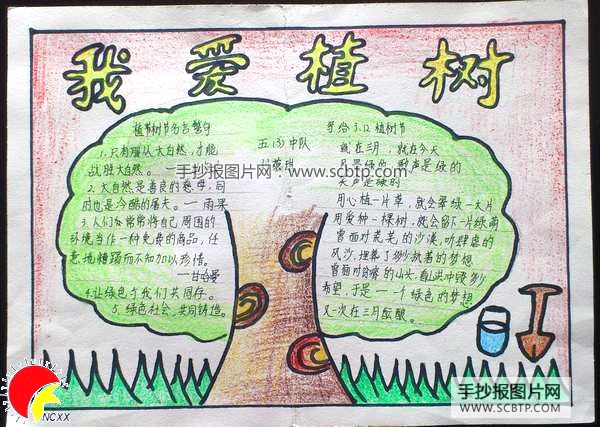 我爱植树
植树节名言警句
1.只有服从大自然,才能
战胜大自然。
2.大自然是善良的慈母,同
时也是冷酷的屠夫。一雨果
3.人们常常将自己周围的
环境当作一种免费的商品,任
意地糟蹋而不知加以珍惜。
一甘哈曼
4.让绿色与我们共同存。
5.绿色社会,共同铸造。
五(3)中队
写给3.12植树节
就在三月,就在今天
风是绿的 歌声是绿的
笑声是绿的
用心植一片草,就会翠绿一大片
用爱种一棵树,就会留下一片绿荫
曾面对茫茫的沙漠,听肆虐的
风沙,埋葬了多少执著的梦想
曾面对贫瘠的山头,看山洪冲毁多少
希望,于是一一个绿色的梦想
又一次在三月酝酿。
手抄报图片网 www.scbtp.com
NCXX
手抄报图片网
WWW.SCBTP.COM